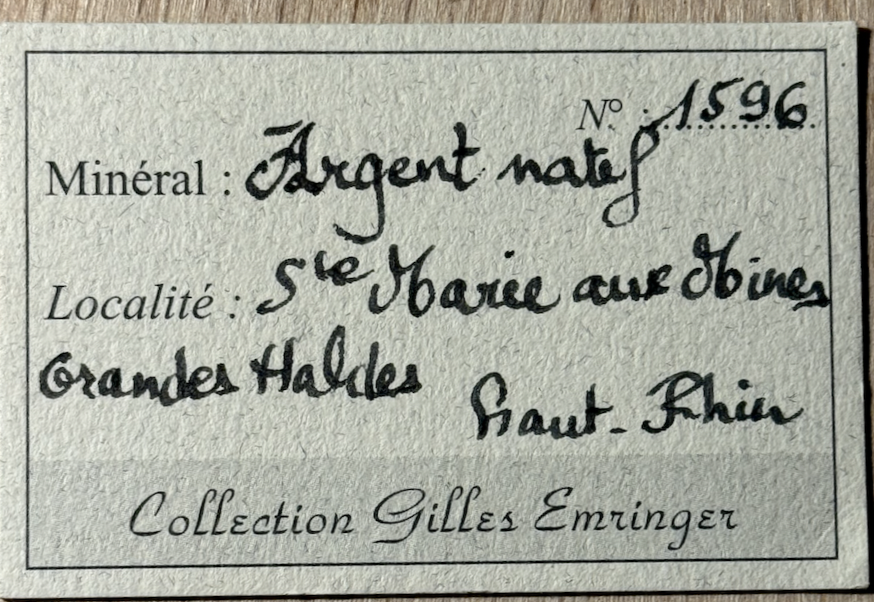 N° : 1596
Minéral : Argent natif
Localité : Ste Marie aux Mines
Grandes Haldes
Haut-Rhin
Collection Gilles Emringer